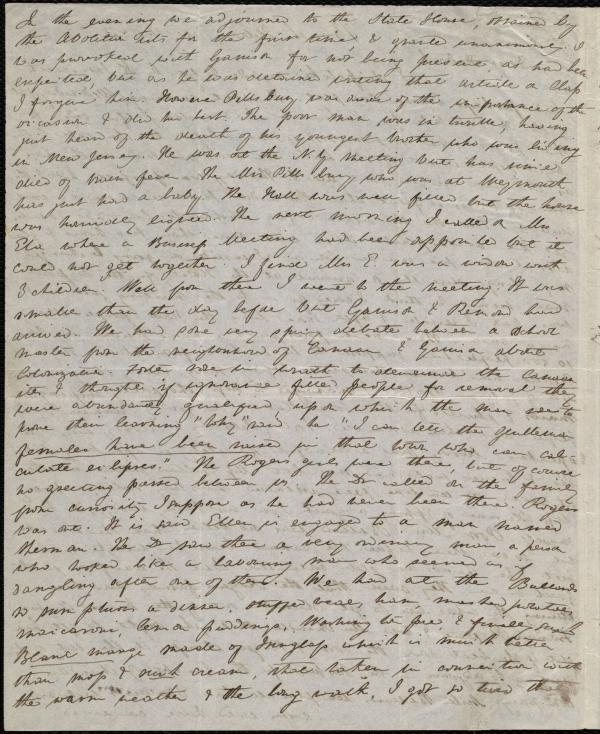 In the evening we adjourned to the State House, obtained by
the Abolitionists for the first time & quite unanimously. I
was provoked with Garrison for not being present as had been
expected, but as he was detained writing that article on Clap
I forgive him. However Pillsbury was aware of the importance of the
occasion & did his best. The poor man was in trouble, having
just heard of the death of his youngest brother who was living
in New Jersey. He was at the N.Y. Meeting but has since
died of brain fever. The Mrs Pillsbury who was at Weymouth
has just had a baby. The Hall was well filled but the house
was horridly lighted. The next morning I called on Mrs
Ela where a Business Meeting had been appointed but it
could not get together. I find Mrs E. was a widow with
3 children. Well from there I went to the meeting. It was
smaller than the day before but Garrison & Remond had
arrived. We had some very spicy debate between a School
master from the neighborhood of Canaan & Garrison about
Colonization. Foster rose in wrath to denounce the Canaan
ites & thought if ignorance fitted people for removal they
were abundantly qualified, upon which the man rose to
prove their learning "Why" said he "I can tell the gentleman
females have been raised in that town who can cal-
culate eclipses." The Rogers girls were there, but of course
no greeting passed between us. The Dr called on the family
from curiosity I suppose as he had never been there. Rogers
was out. It is said Ellen is engaged to a man named
Herman. The Dr saw there a very ordinary man, a person
who looked like a labouring man who seemed as if
dangling after one of them. We had at the Bullards
a sumptuous dinner, stuffed veal, ham, mashed potatoes,
maccaroni, lemon puddings, Washington pie, & finally
Blanc mange made of which is much better
than mop & rich cream, that taken in connection with
the warm weather & the long walk, I got so tired that